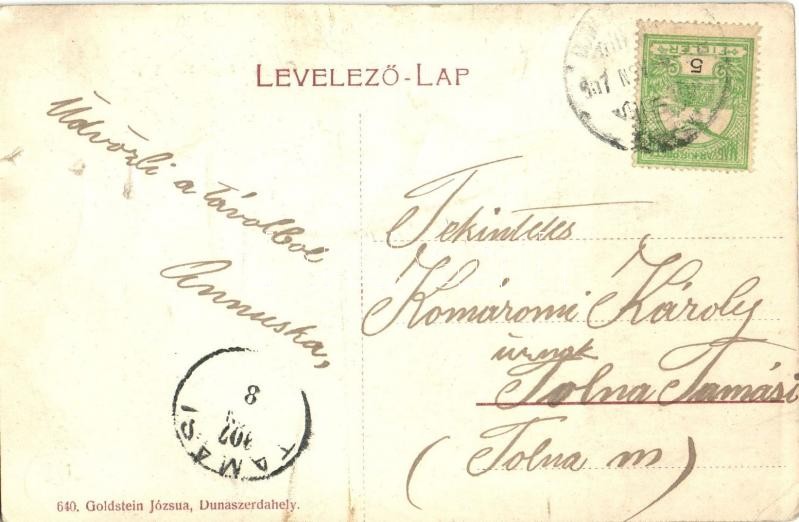 LEVELEZŐ-LAP
Üdvözli a távolból
Annuska,
Tekintetes
Komáromi Károly
úrnak
Tolna Tamási
(Tolna m)
5
FILLÉR
907 NOV
TAMÁSI
907
8
640. Goldstein Józsua, Dunaszerdahely.